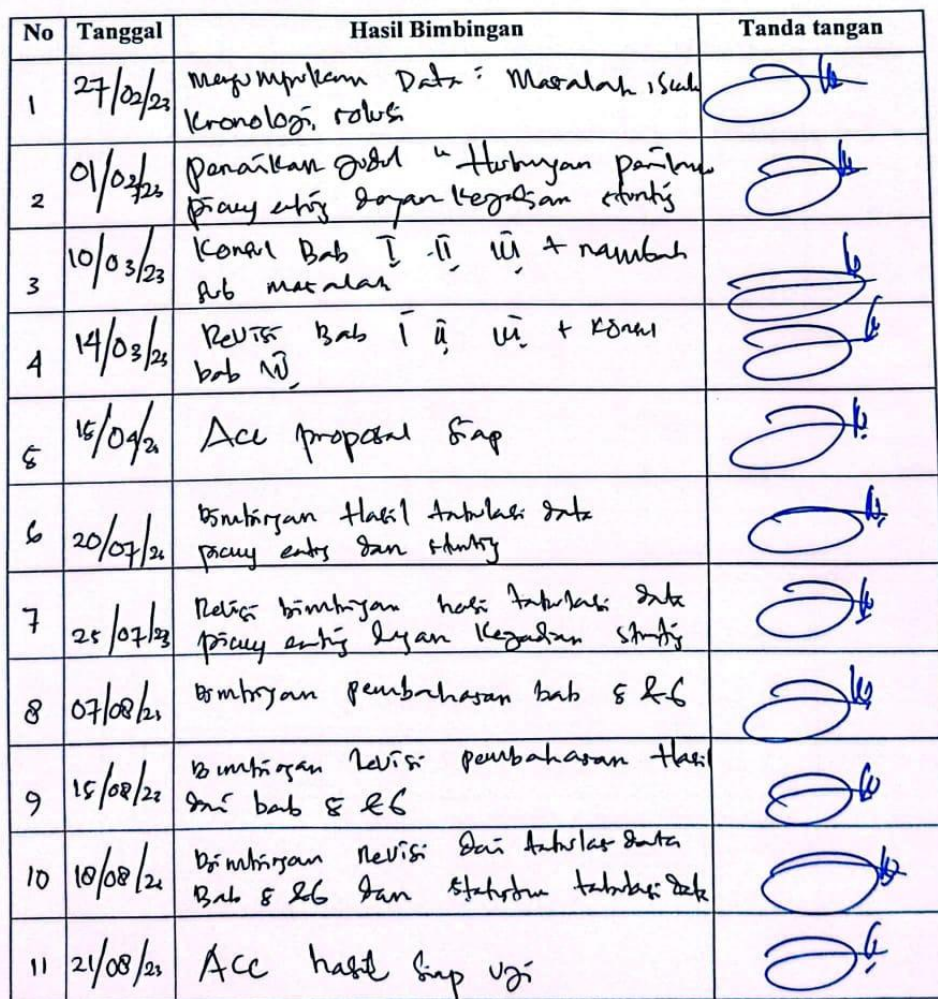 No Tanggal Hasil Bimbingan Tanda tangan
1 27/02/23 Mengumpulkan Data: Masalah,
Kronologi, solusi
2 01/03/23 penarikan judul "Hubungan perilaku
picky eating dengan kejadian stunting
3 10/03/23 Konsul Bab I II III + nambah
sub masalah
4 14/03/23 Revisi Bab I II III + Konsul
bab IV
5 15/04/23 Acc proposal siap
6 20/07/23 Bimbingan Hasil tabulasi data
picky eating dan stunting
7 25/07/23 Revisi bimbingan hasil tabulasi data
picky eating dengan Kejadian stunting
8 07/08/23 Bimbingan pembahasan bab 5 & 6
9 15/08/23 Bimbingan Revisi pembahasan Hasil
dari bab 5 & 6
10 18/08/23 Bimbingan Revisi dari tabulasi data
Bab 5 & 6 dan tabulasi data
11 21/08/23 Acc hasil siap uji